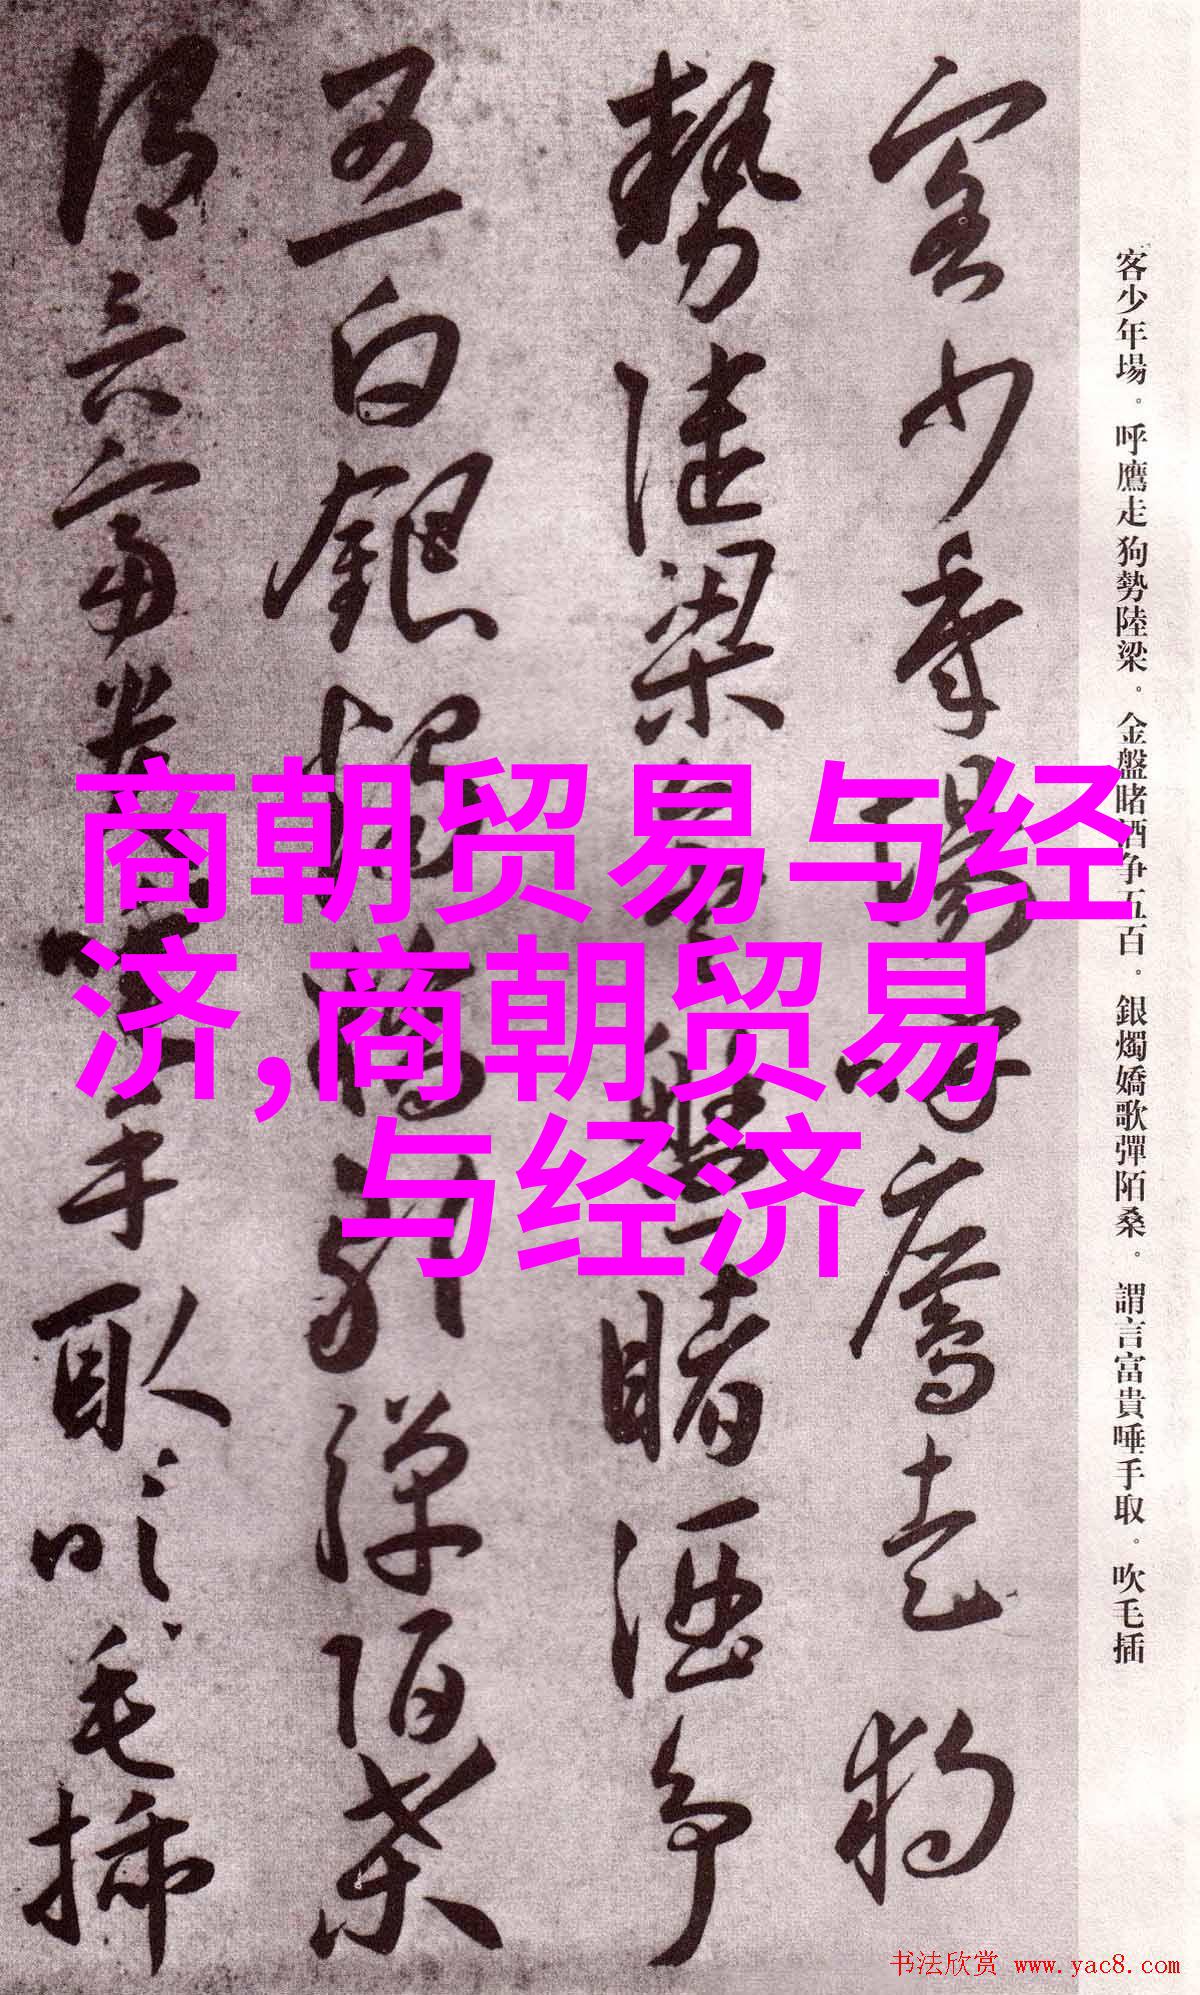 客少年場。呼鷹走狗勢陸梁。金盤睹洒争五百。銀燭嬌歌彈陌桑。謂言富貴唾手取。吹毛插
客少年場呼鷹走狗
勢陸梁金盤賭酒爭
五白銀燭嬌歌彈陌桑
謂言富貴唾手取吹毛插
商朝贸易与经
济,商朝贸易
与经济
书法欣赏 www.yac8.com